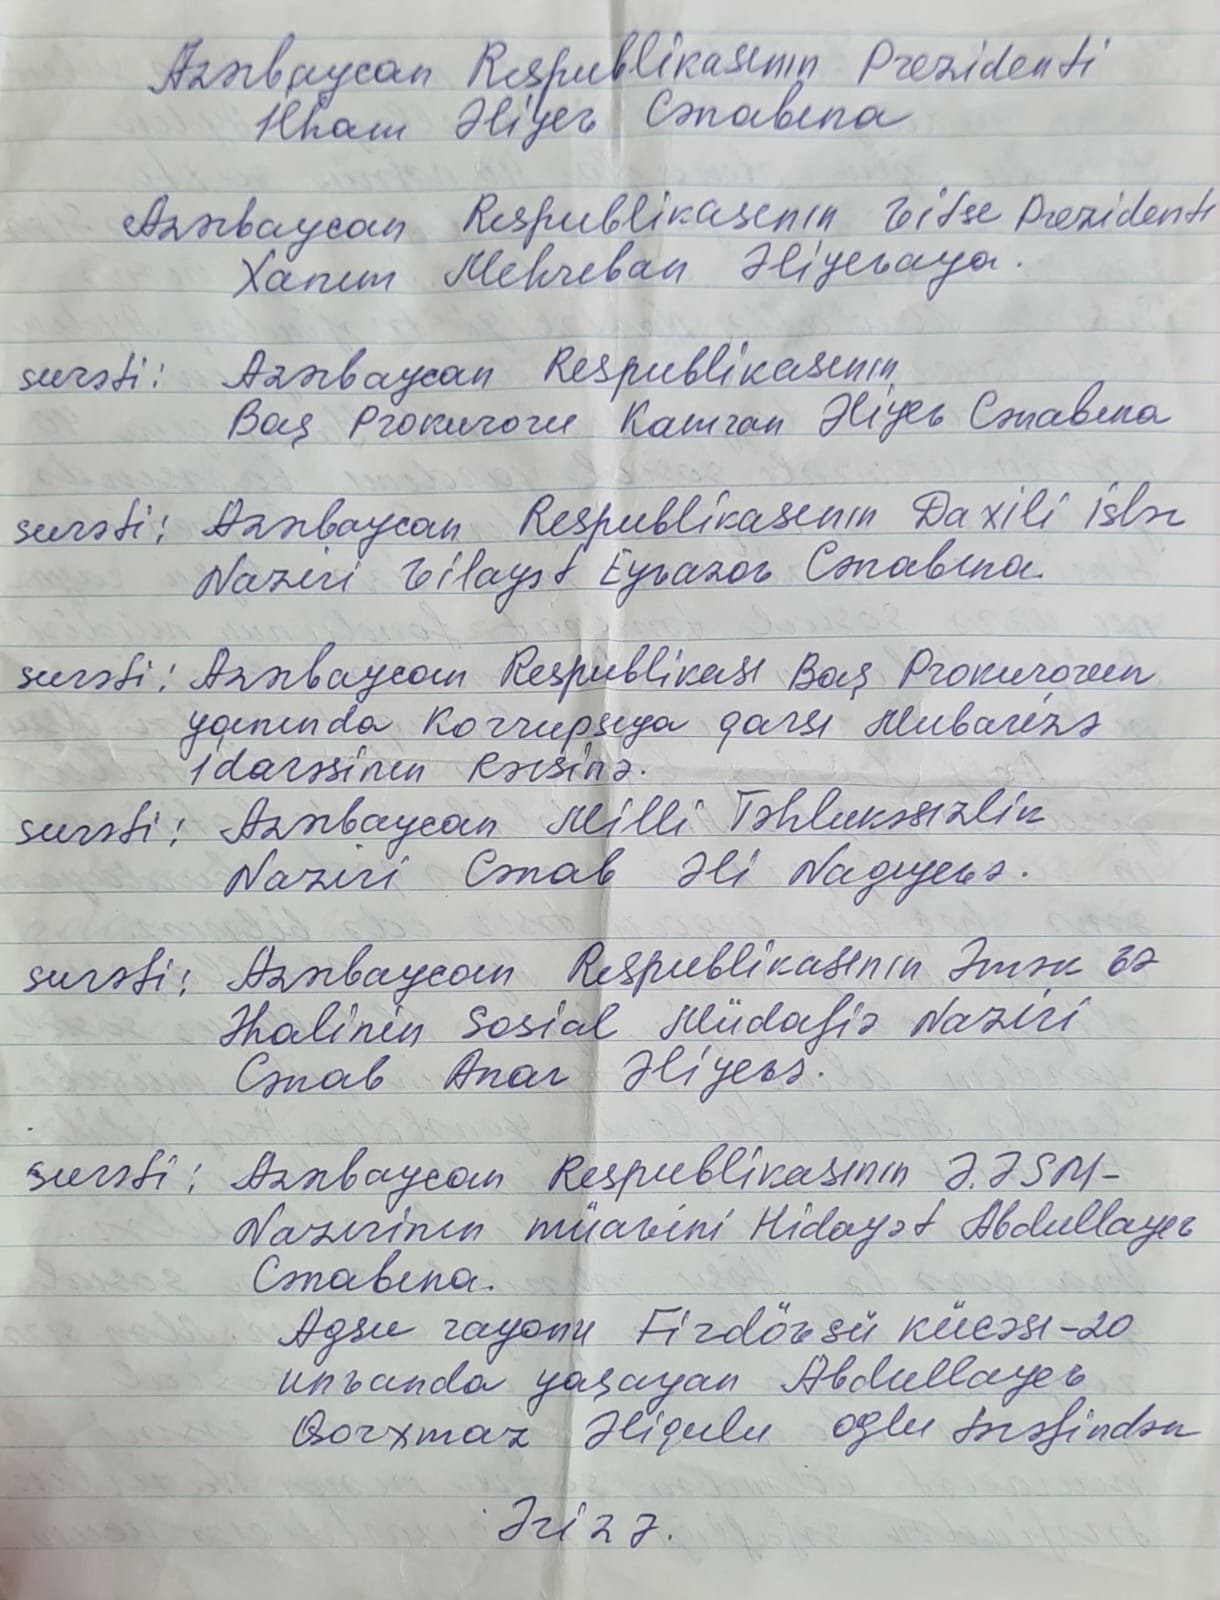 Azərbaycan Respublikasının Prezidenti
İlham Əliyev Cənabına
Azərbaycan Respublikasının vitse Prezidenti
Xanım Mehreban Əliyevaya.
surəti: Azərbaycan Respublikasının
Baş Prokuroru Kamran Əliyev Cənabına
surəti: Azərbaycan Respublikasının Daxili işlər
Naziri Vilayət Eyvazov Cənabına
surəti: Azərbaycan Respublikası Baş Prokurorun
yanında Korrupsiya qarşı Mubarizə
İdarəsinin Rəisinə.
surəti: Azərbaycan Milli Təhlukəsızlik
Naziri Cənab Əli Nagıyevə.
surəti: Azərbaycan Respublikasının Əmək və
Əhalinin Sosial Müdafiə Naziri
Cənab Anar Əliyevə.
surəti: Azərbaycan Respublikasının Ə.ƏSM-
Nazırinin müavini Hidayət Abdullayev
Cənabına.
Agsu rayonu Firdövsü küçəsı-20
unvanda yaşayan Abdullayev
Qorxmaz Əliqulu oglu tərəfindən
Əri z ə.